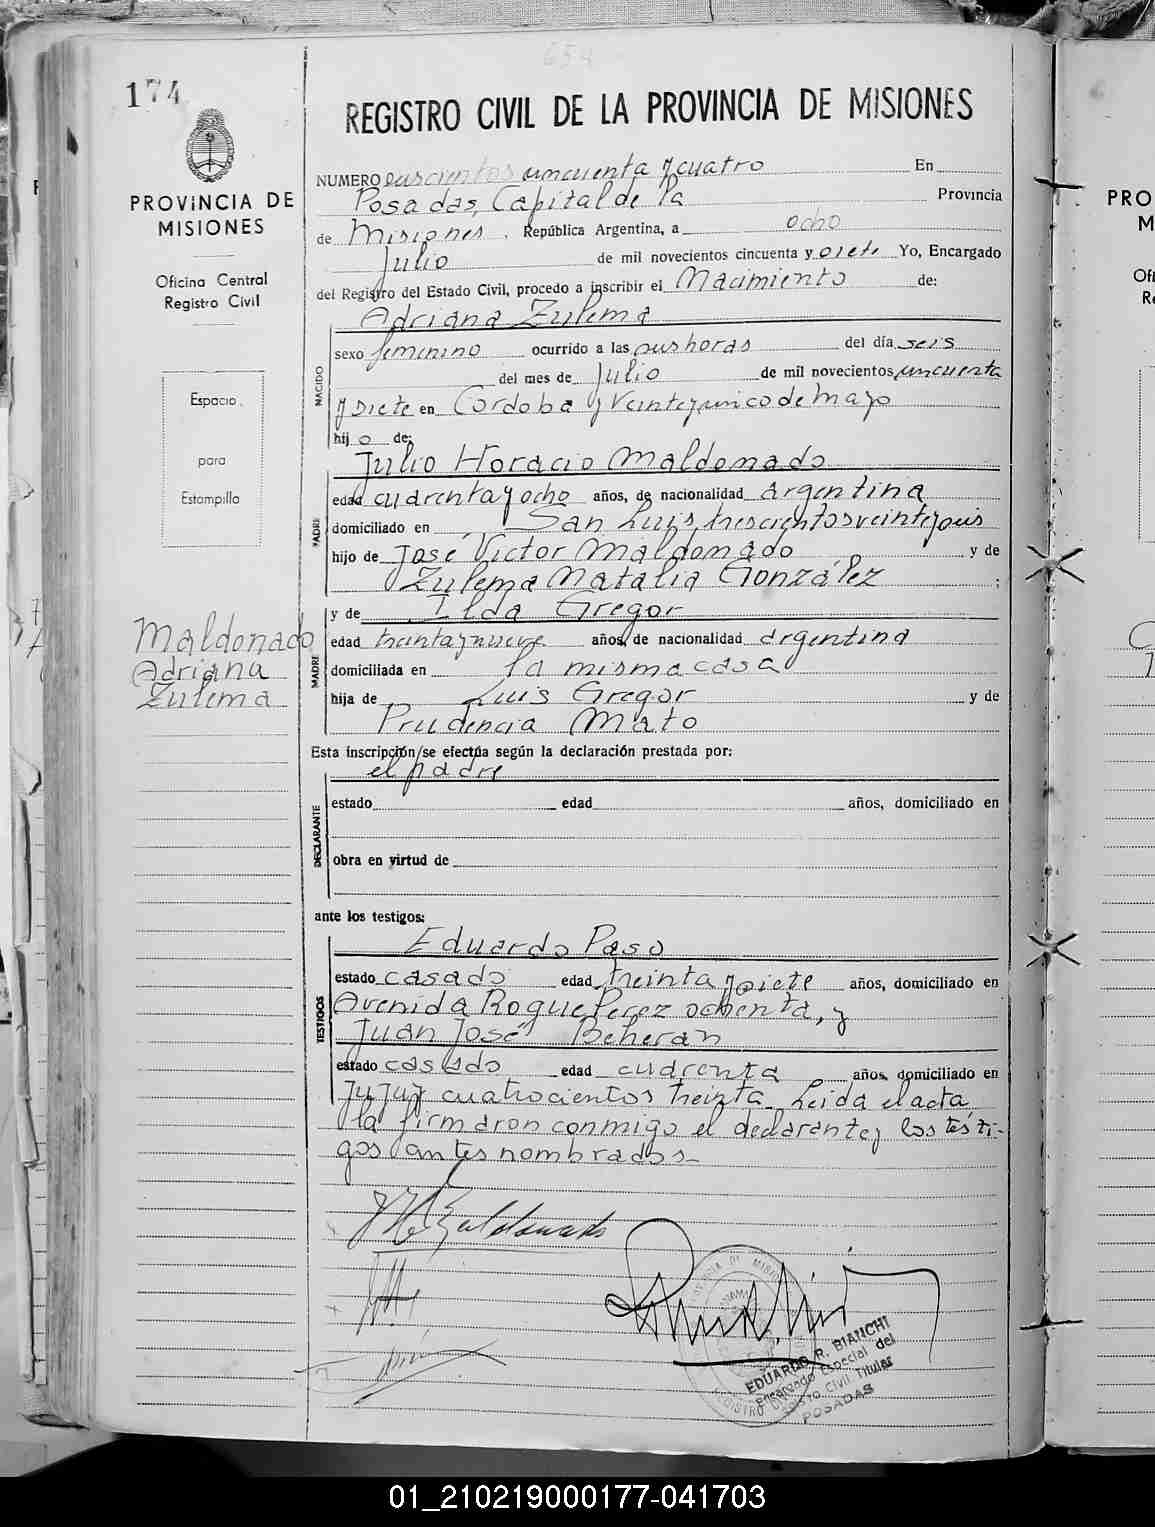 654
174
REGISTRO CIVIL DE LA PROVINCIA DE MISIONES
PROVINCIA DE
MISIONES
Oficina Central
Registro Civil
Espacio
para
Estampilla
Maldonado
Adriana
Zulema
NUMERO seiscientos cincuenta y cuatro En
Posadas, Capital de la Provincia
de Misiones, República Argentina, a ocho
Julio de mil novecientos cincuenta y siete Yo, Encargado
del Registro del Estado Civil, procedo a inscribir el Nacimiento de:
NACIDO
Adriana Zulema
sexo femenino ocurrido a las seis horas del día seis
del mes de Julio de mil novecientos cincuenta
y siete en Cordoba y Veinticinco de Mayo
hijo de:
PADRE
Julio Horacio Maldonado
edad cuarenta y ocho años, de nacionalidad argentina
domiciliado en San Luis, trescientos veintiseis
hijo de José Victor Maldonado y de
Zulema Natalia González ;
MADRE
y de Ilda Gregor
edad treinta y nueve años, de nacionalidad argentina
domiciliada en la misma casa
hija de Luis Gregor y de
Prudencia Mato
Esta inscripción se efectúa según la declaración prestada por:
DECLARANTE
el padre
estado edad años, domiciliado en
obra en virtud de
ante los testigos:
TESTIGOS
Eduardo Paso
estado casado edad treinta y siete años, domiciliado en
Avenida Roque Perez ochenta, y
Juan José Beheran
estado casado edad cuarenta años, domiciliado en
Jujuy cuatrocientos treinta. Leida el acta,
la firmaron conmigo el declarante y los testi-
gos antes nombrados-
JH Maldonado
EDUARDO R. BIANCHI
Encargado Especial del
Registro Civil Titular
POSADAS
PRO
M
Ofi
Re
01_210219000177-041703